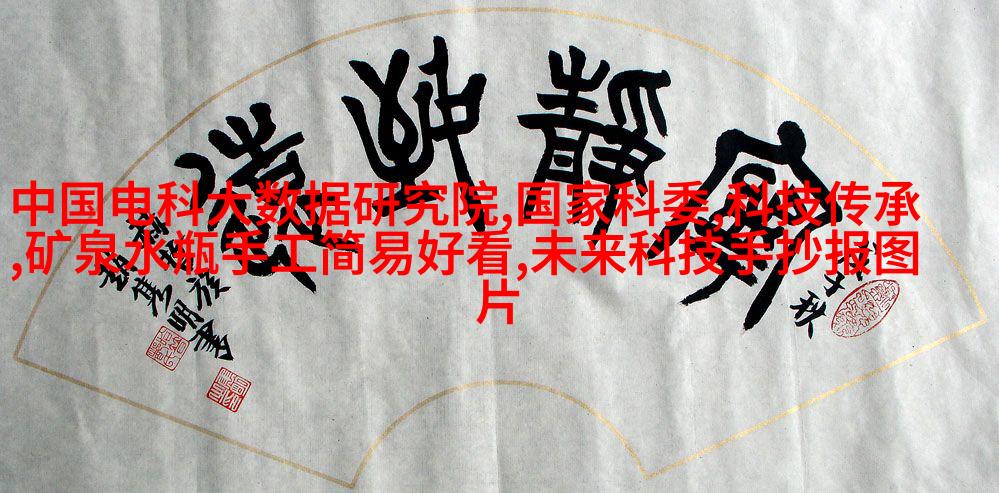 中国电科大数据研究院,国家科委,科技传承
,矿泉水瓶手工简易好看,未来科技手抄报图
片
寧靜致遠